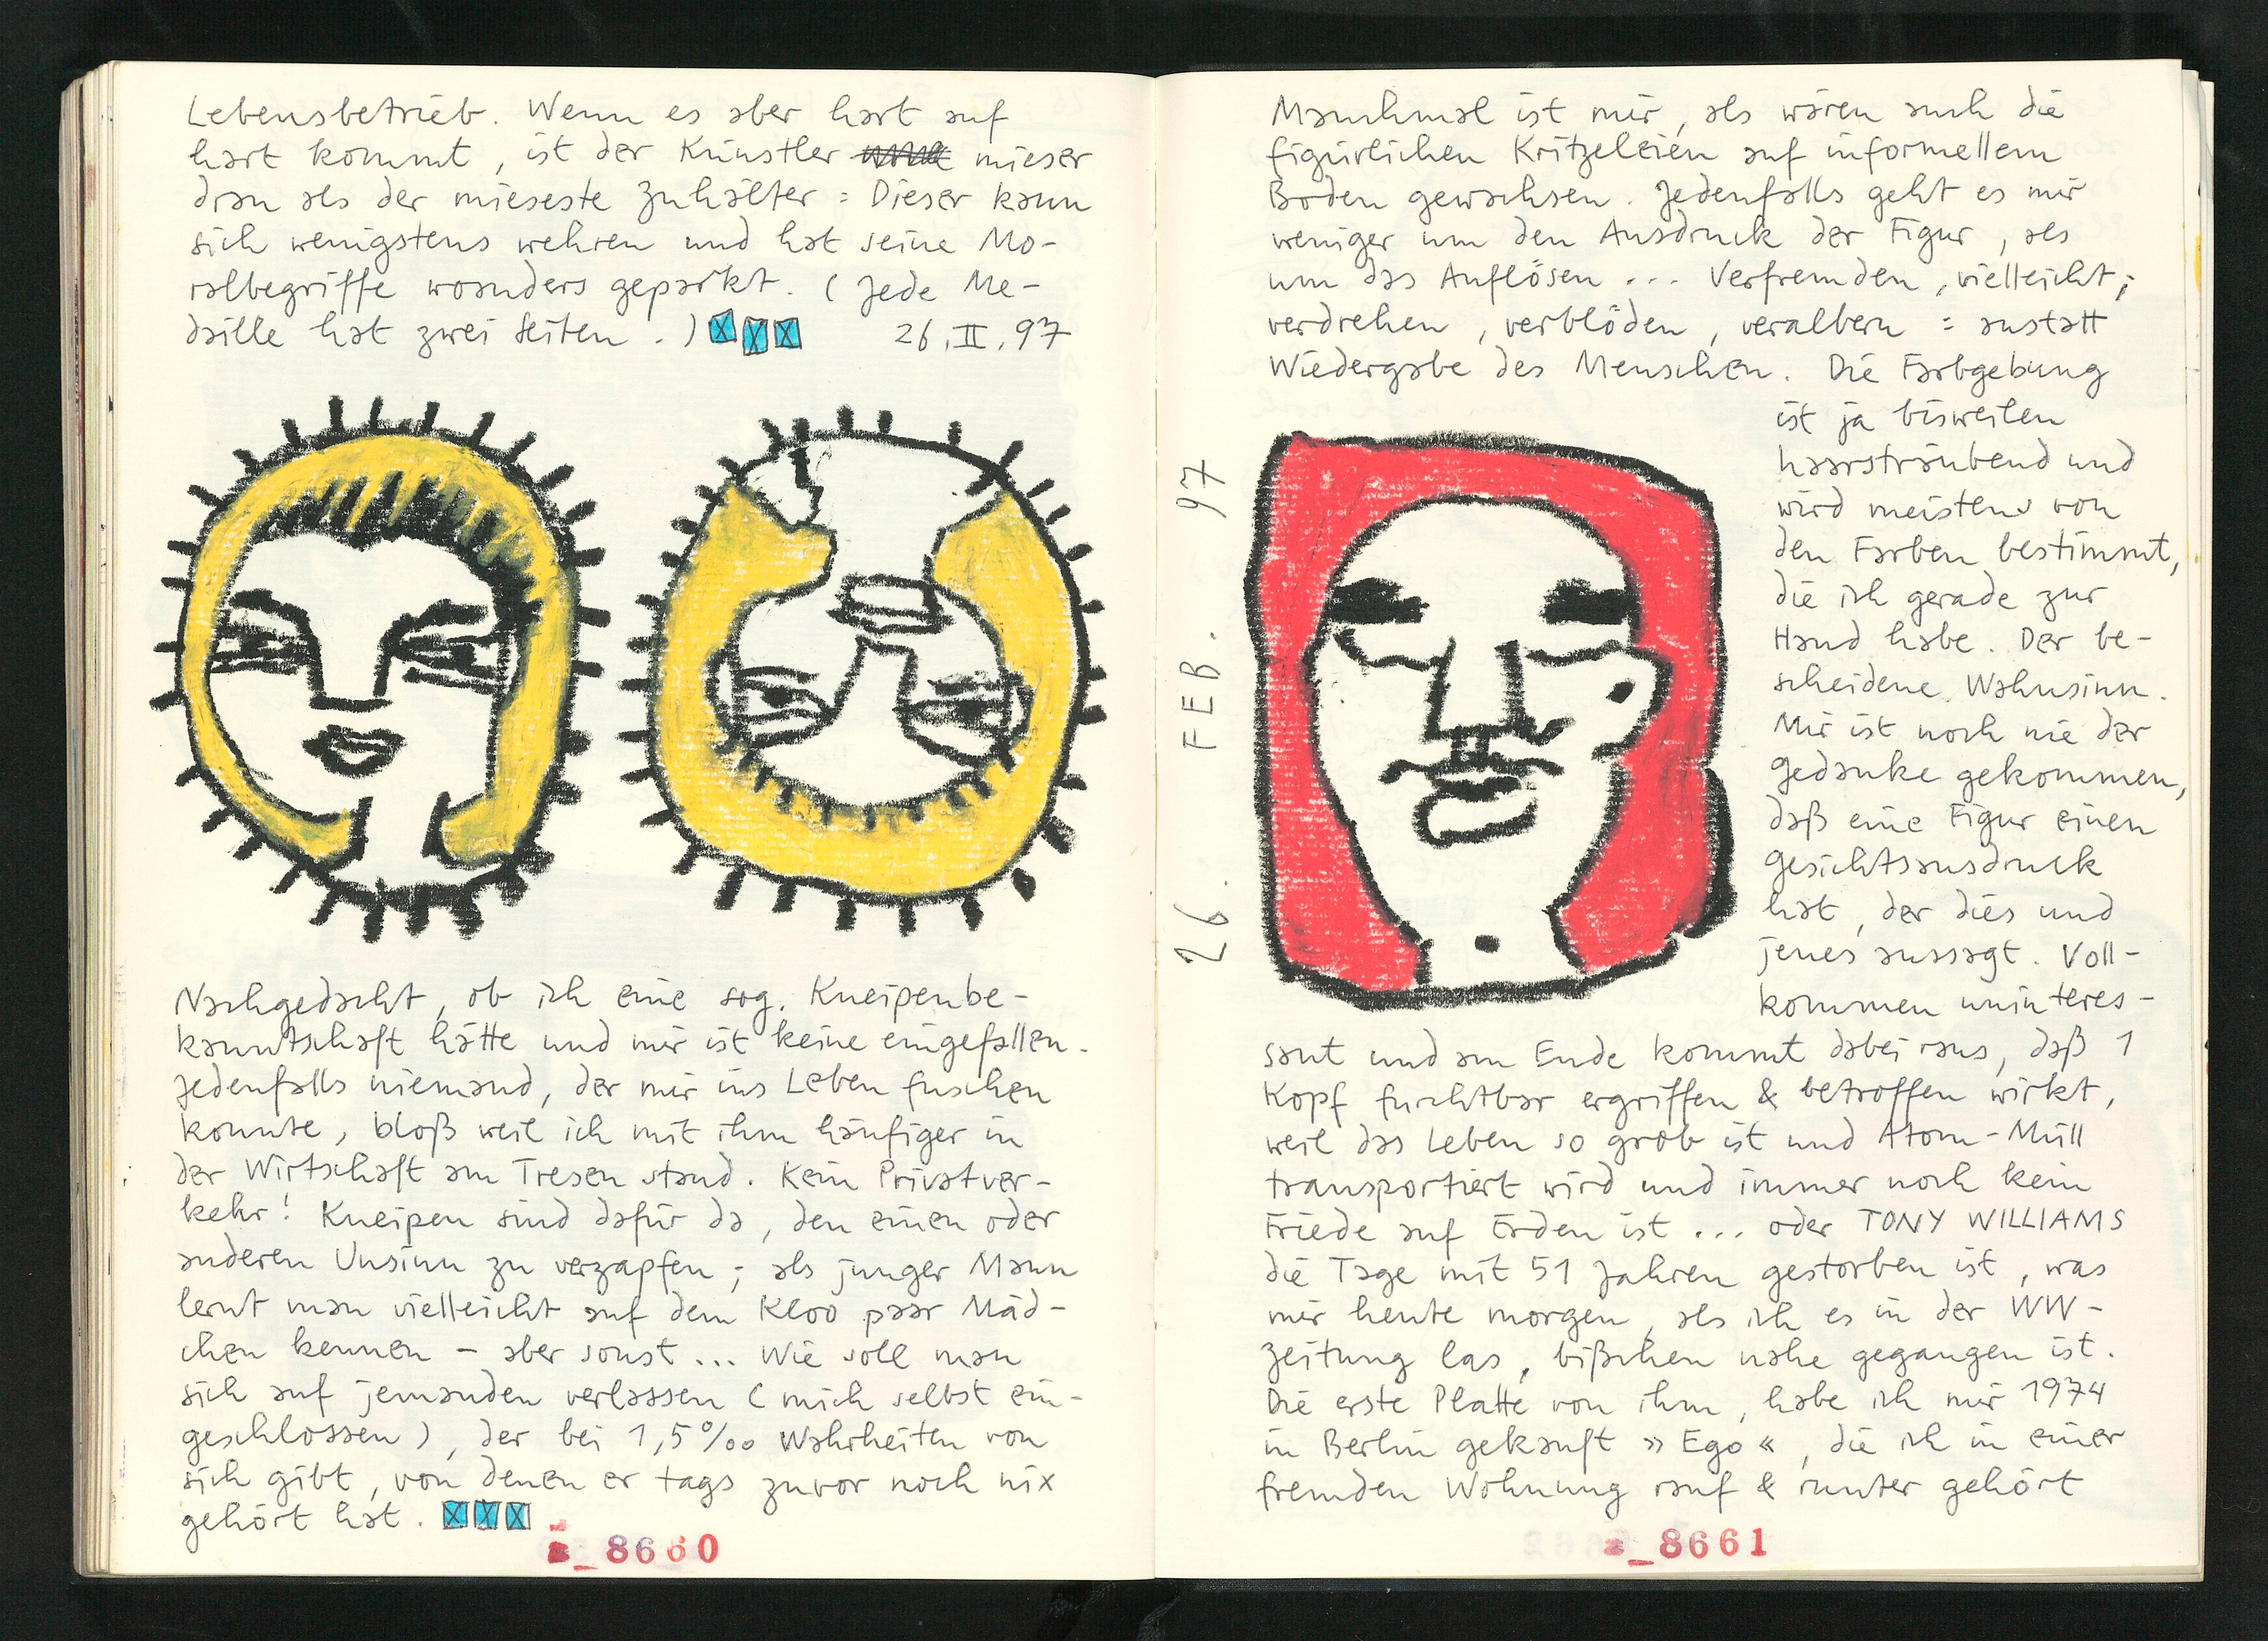 Lebensbetrieb. Wenn es aber hart auf
hart kommt, ist der Künstler mieser
dran als der mieseste Zuhälter: Dieser kann
sich wenigstens wehren und hat seine Mo-
ralbegriffe woanders geparkt. (Jede Me-
daille hat zwei Seiten.) XXX 26.II.97
Nachgedacht, ob ich eine sog. Kneipenbe-
kanntschaft hätte und mir ist keine eingefallen.
Jedenfalls niemand, der mir ins Leben fuschen
konnte, bloß weil ich mit ihm häufiger in
der Wirtschaft am Tresen stand. Kein Privatver-
kehr! Kneipen sind dafür da, den einen oder
anderen Unsinn zu verzapfen; als junger Mann
lernt man vielleicht auf dem Kloo paar Mäd-
chen kennen - aber sonst... Wie soll man
sich auf jemanden verlassen (mich selbst ein-
geschlossen), der bei 1,5‰ Wahrheiten von
sich gibt, von denen er tags zuvor noch nix
gehört hat. XXX
8660
Manchmal ist mir, als wären auch die
figürlichen Kritzeleien auf informellem
Boden gewachsen. Jedenfalls geht es mir
weniger um den Ausdruck der Figur, als
um das Auflösen... Verfremden, vielleicht;
verdrehen, verblöden, veralbern = anstatt
Wiedergabe des Menschen. Die Farbgebung
ist ja bisweilen
haarsträubend und
wird meistens von
den Farben bestimmt,
die ich gerade zur
Hand habe. Der be-
scheidene Wahnsinn.
Mir ist noch nie der
Gedanke gekommen,
daß eine Figur einen
Gesichtsausdruck
hat, der dies und
jenes aussagt. Voll-
kommen uninteres-
sant und am Ende kommt dabei raus, daß 1
Kopf furchtbar ergriffen & betroffen wirkt,
weil das Leben so grob ist und Atom-Müll
transportiert wird und immer noch kein
Friede auf Erden ist... oder TONY WILLIAMS
die Tage mit 51 Jahren gestorben ist, was
mir heute morgen, als ich es in der WW-
Zeitung las, bißchen nahe gegangen ist.
Die erste Platte von ihm, habe ich mir 1974
in Berlin gekauft »Ego«, die ich in einer
fremden Wohnung rauf & runter gehört
26. FEB. 97
8661